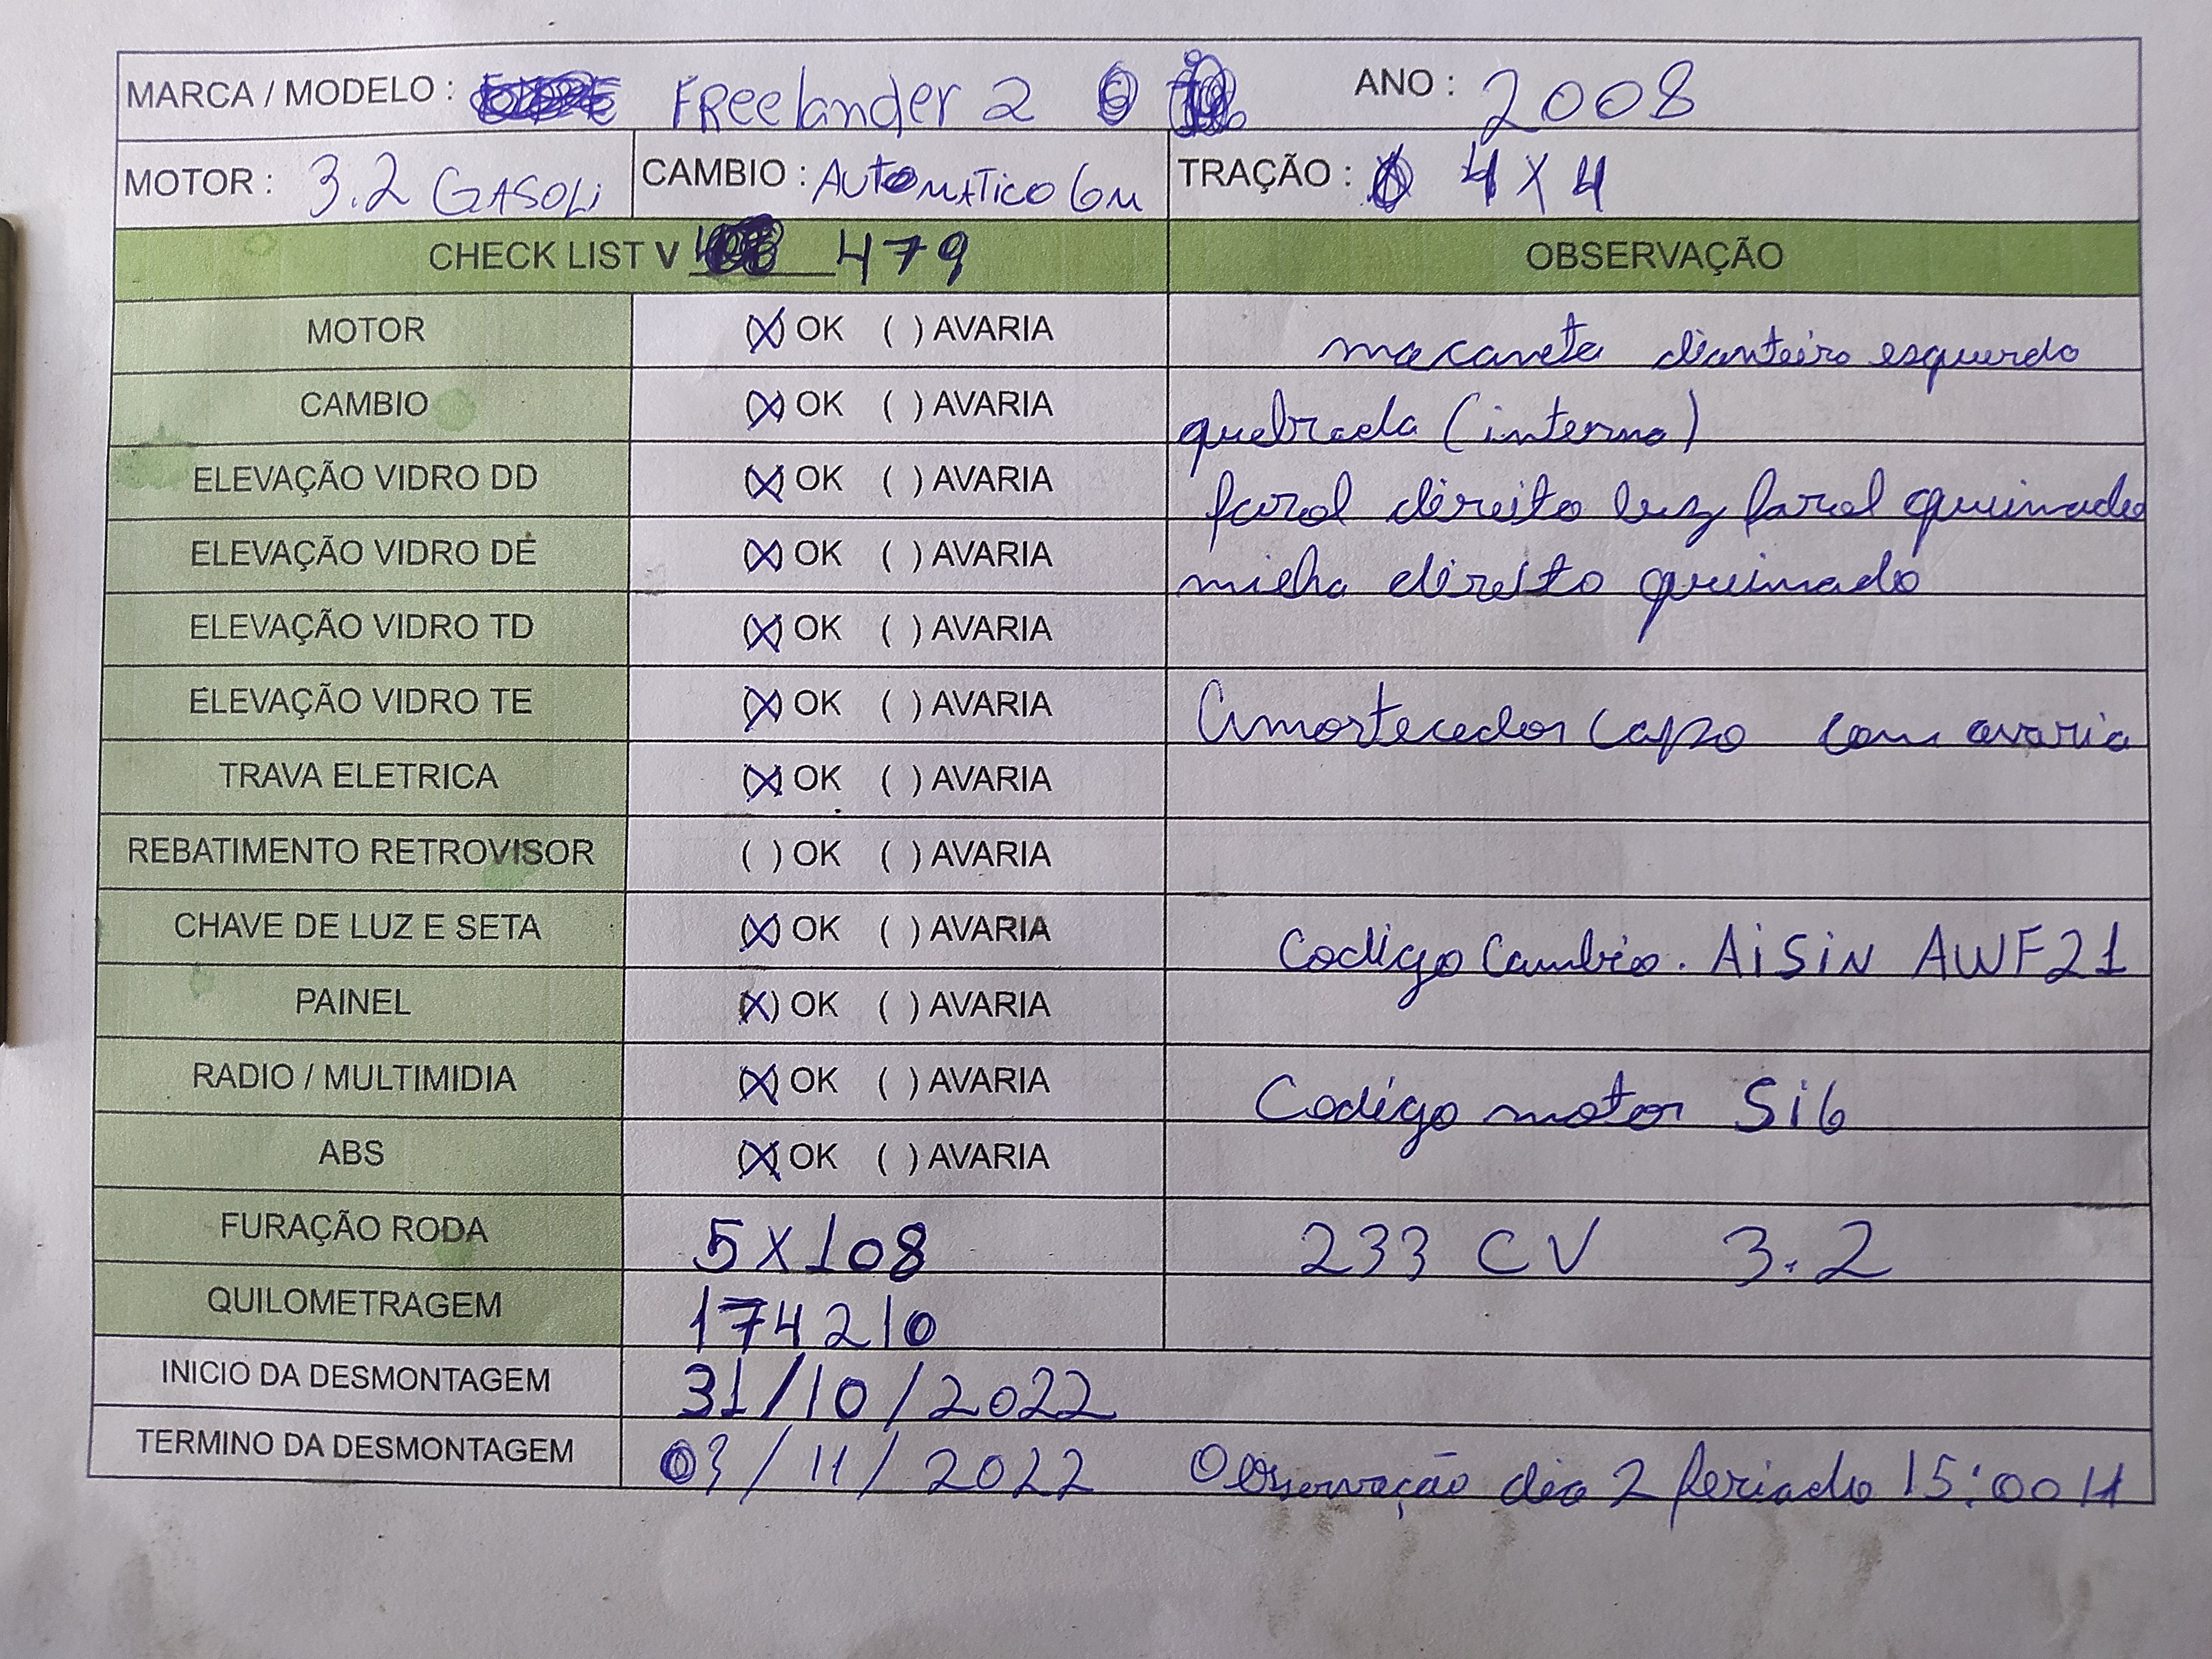 MARCA / MODELO : FReelander 2 ANO : 2008
MOTOR : 3.2 GASOLi CAMBIO : AUTOMATICO 6M TRAÇÃO : 4X4
CHECK LIST V 479 OBSERVAÇÃO
MOTOR (X) OK ( ) AVARIA macaneta dianteiro esquerdo
CAMBIO (X) OK ( ) AVARIA quebrada (interna)
ELEVAÇÃO VIDRO DD (X) OK ( ) AVARIA farol direito luz farol queimado
ELEVAÇÃO VIDRO DE (X) OK ( ) AVARIA milha direito queimado
ELEVAÇÃO VIDRO TD (X) OK ( ) AVARIA
ELEVAÇÃO VIDRO TE (X) OK ( ) AVARIA Amortecedor capo com avaria
TRAVA ELETRICA (X) OK ( ) AVARIA
REBATIMENTO RETROVISOR ( ) OK ( ) AVARIA
CHAVE DE LUZ E SETA (X) OK ( ) AVARIA Codigo Cambio. AiSiN AWF21
PAINEL (X) OK ( ) AVARIA
RADIO / MULTIMIDIA (X) OK ( ) AVARIA Codigo motor Si6
ABS (X) OK ( ) AVARIA
FURAÇÃO RODA 5X108 233 CV 3.2
QUILOMETRAGEM 174210
INICIO DA DESMONTAGEM 31/10/2022
TERMINO DA DESMONTAGEM 03/11/2022 Observação dia 2 feriado 15:00 H